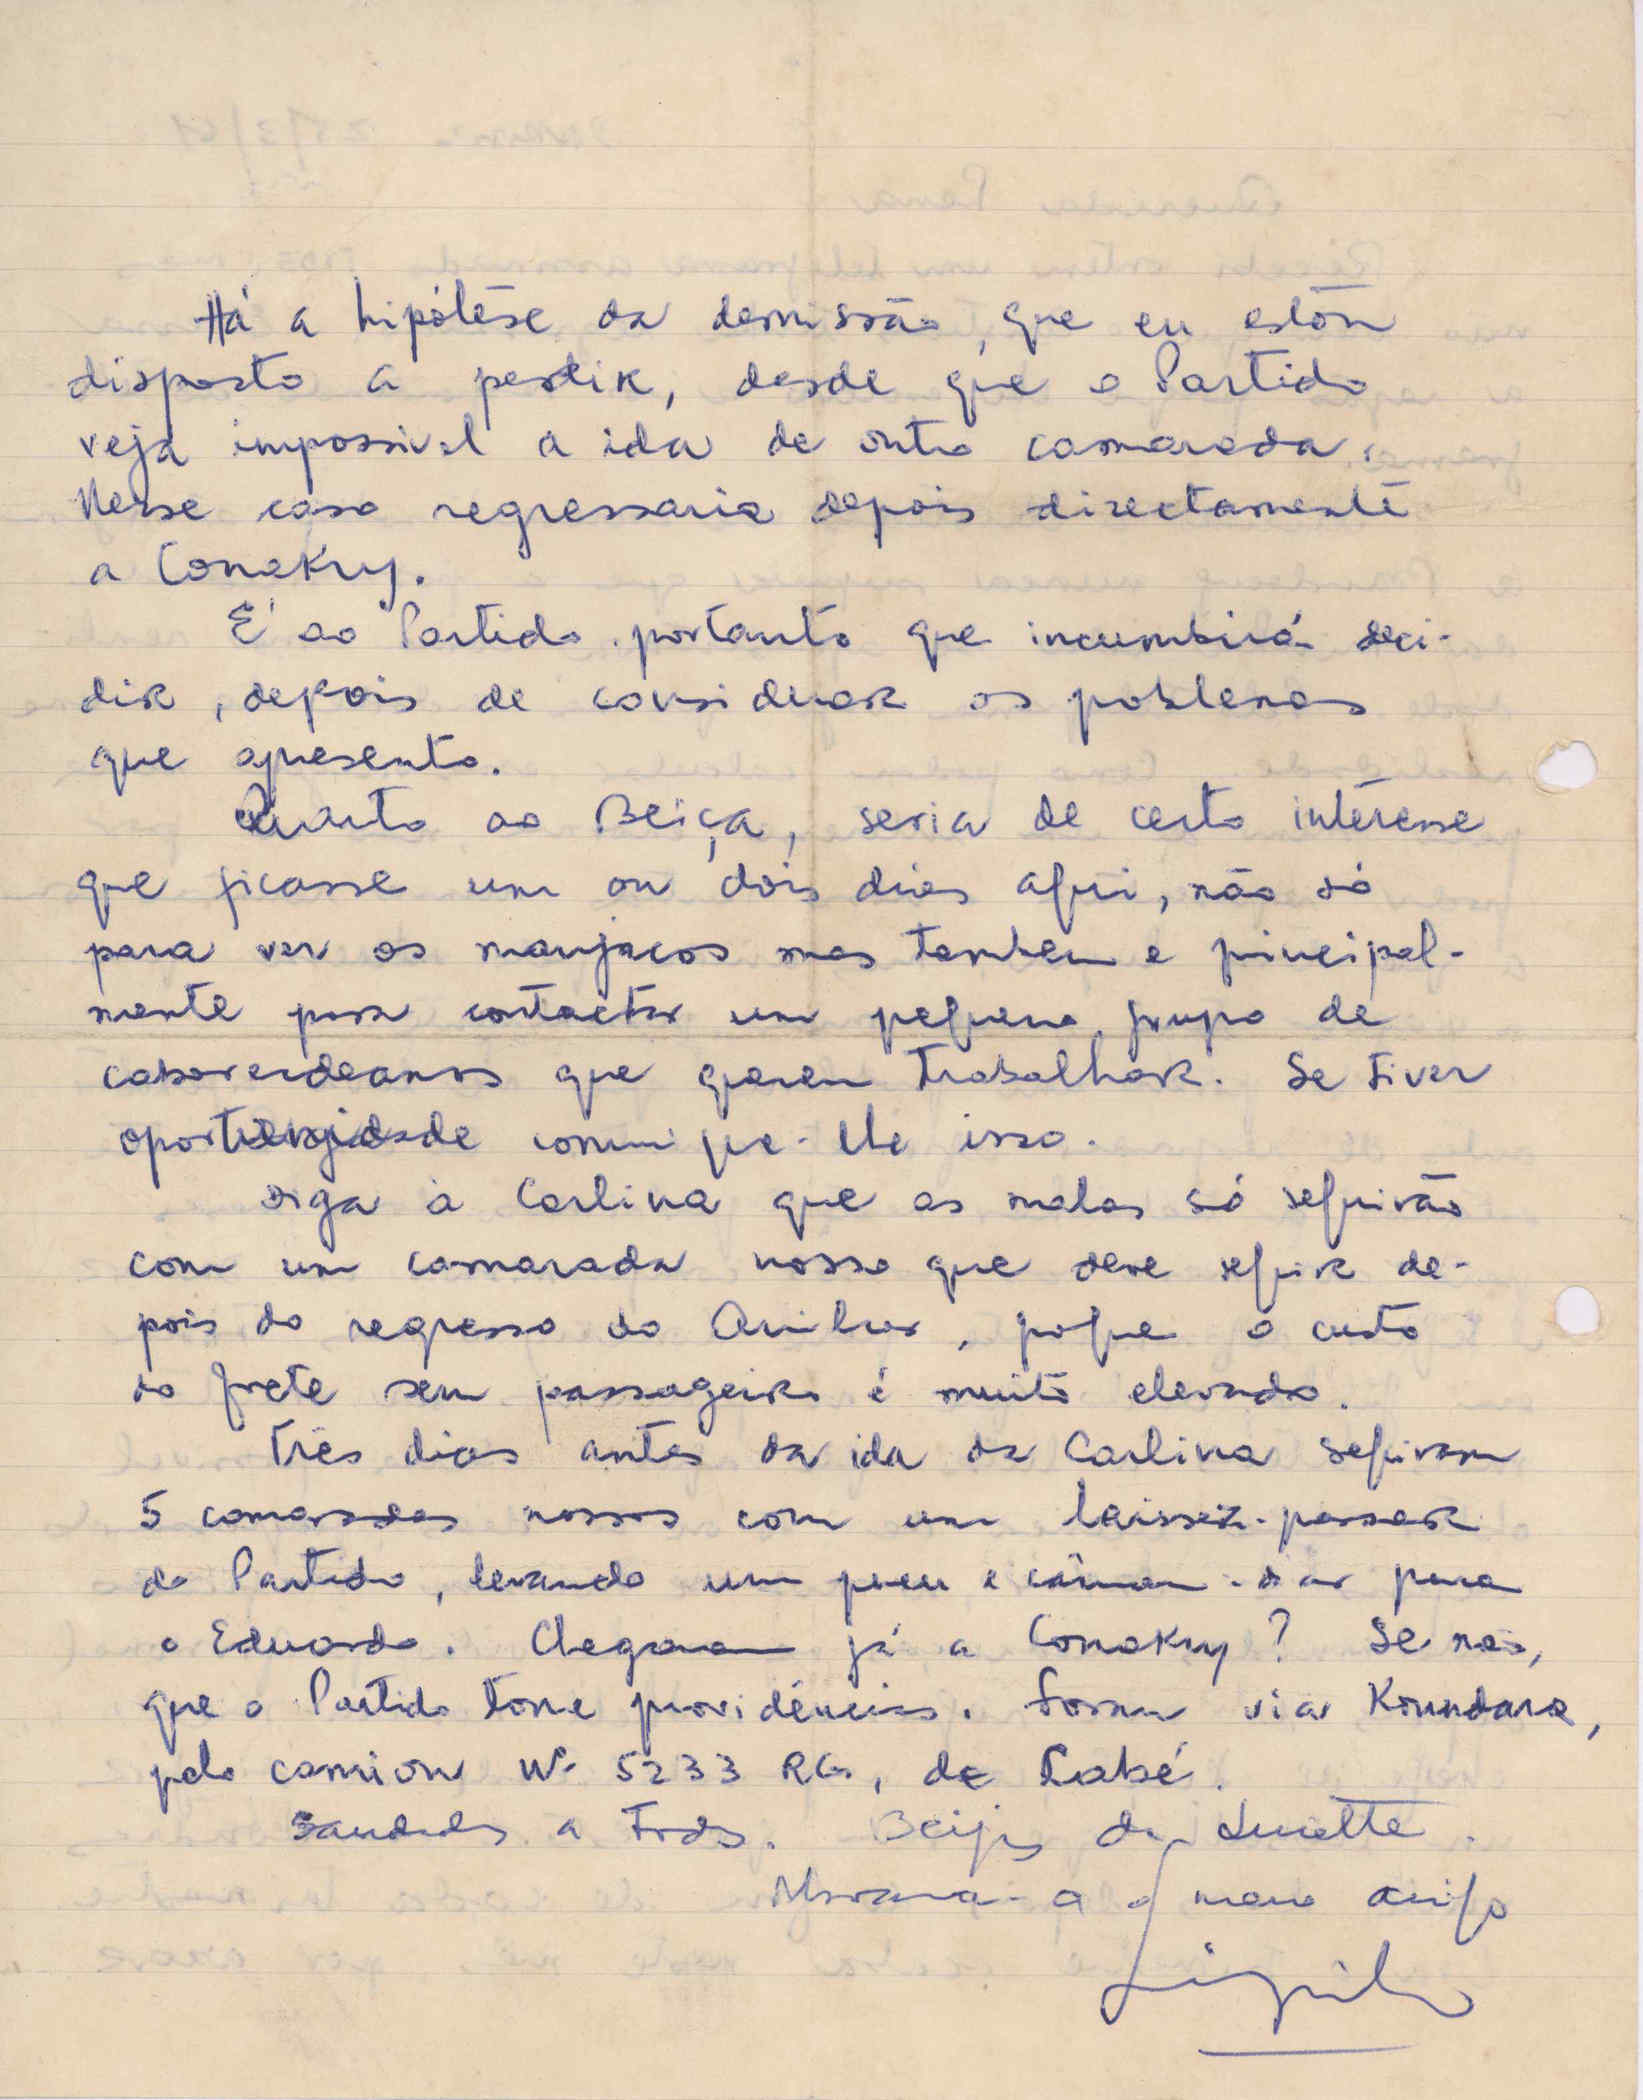 Há a hipótese da demissão, que eu estou
disposto a pedir, desde que o Partido
veja impossivel a ida de outro camarada.
Nesse caso regressaria depois directamente
a Conakry.
É ao Partido portanto que incumbirá deci-
dir, depois de considerar os problemas
que apresento.
Quanto ao Beiça, seria de certo interesse
que ficasse um ou dois dias aqui, não só
para ver os manjacos mas tambem e principal-
mente para contactar um pequeno grupo de
caboverdeanos que querem trabalhar. Se tiver
oportunidade comunique-lhe isso.
Diga à Carlina que as malas só seguirão
com um camarada nosso que deve seguir de-
pois do regresso do Amilcar, porque o custo
do frete sem passageiro é muito elevado.
Três dias antes da ida da Carlina seguiram
5 camaradas nossos com um laissez-passer
do Partido, levando um pneu e câmara-d'ar para
o Eduardo. Chegaram já a Conakry? Se não,
que o Partido tome providências. Foram via Koundara,
pelo camion Nº 5233 RG, de Labé.
Saudades a Todos. Beijos da Lucette.
Abraça-a o mano amigo